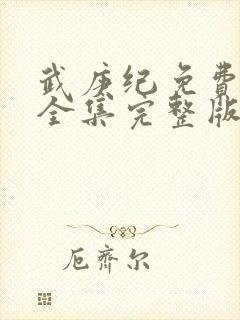 武庚纪免费
全集完整版
厄齐尔